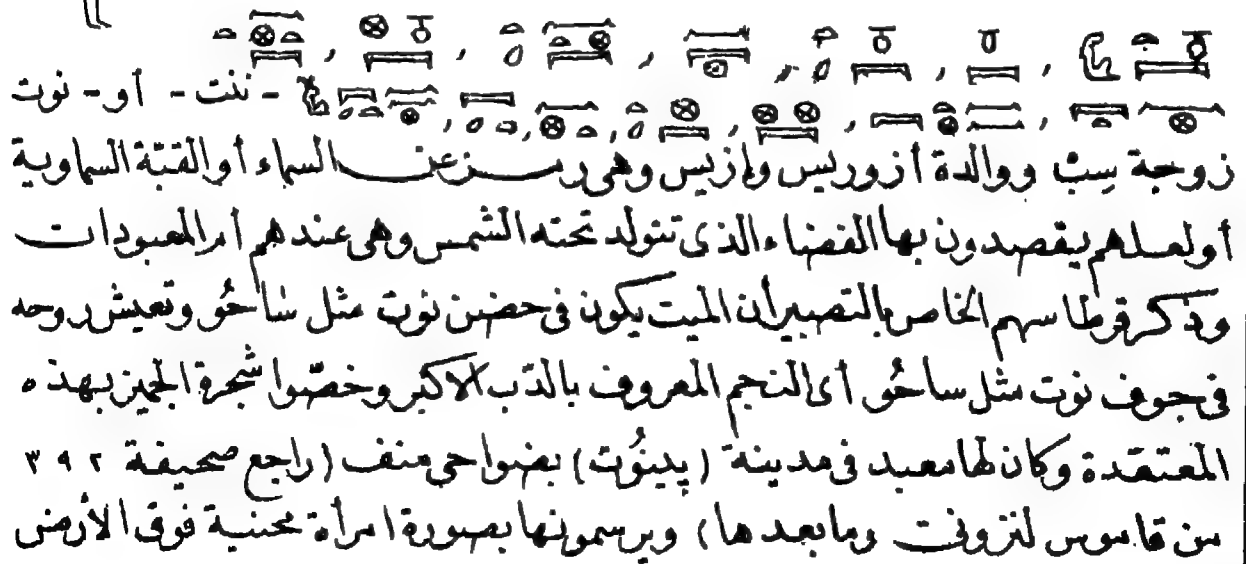 - ننت - أو - نوت
زوجة سِبْ ووالدة أزوريس وإزيس وهى رمز عن السماء أو القبّة السماوية
أولعلهم يقصدون بها الفضاء الذى تتولد تحته الشمس وهى عندهم أم المعبودات
وذكر قرطاسهم الخاص بالتصبير أن الميت يكون فى حضن نوت مثل ساحُو وتعيش روحه
فى جوف نوت مثل ساحُو أى النجم المعروف بالدّب الاكبر وخصّوا شجرة الجميز بهذه
المعتقدة وكان لها معبد فى مدينة (پينُوت) بضواحى منف (راجع صحيفة ٣٩٢
من قاموس لنزونى وما بعدها) ويرسمونها بصورة امرأة محنية فوق الأرض